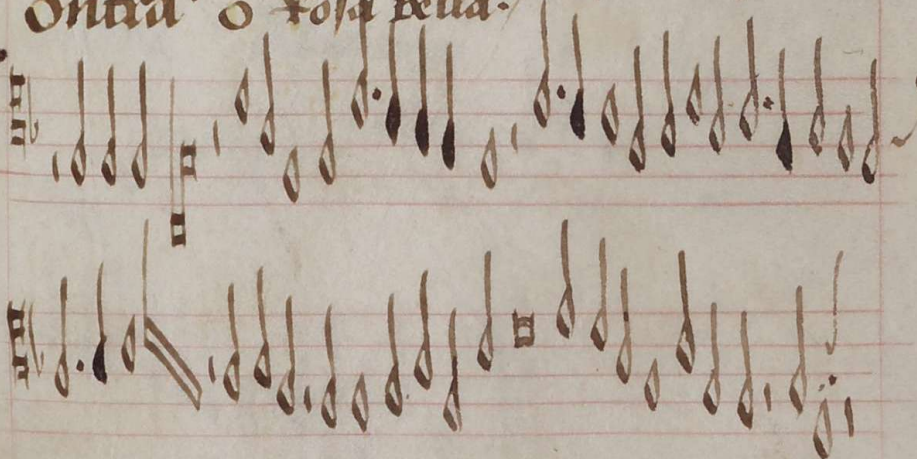 ontra O Rosa bella.